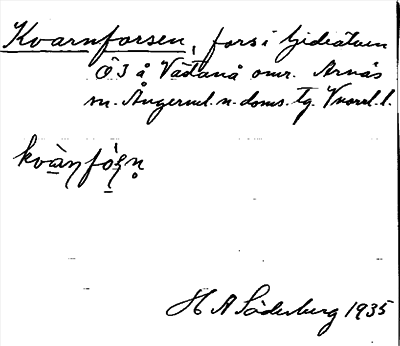 Kvarnforsen, fors i Gideälven
Ö3 å Västanå omr. Arnäs
sn. Ångerml. n. doms. tg. Vnorrl. l.
kvàn̩fòs̩n̥
H A Söderberg 1935